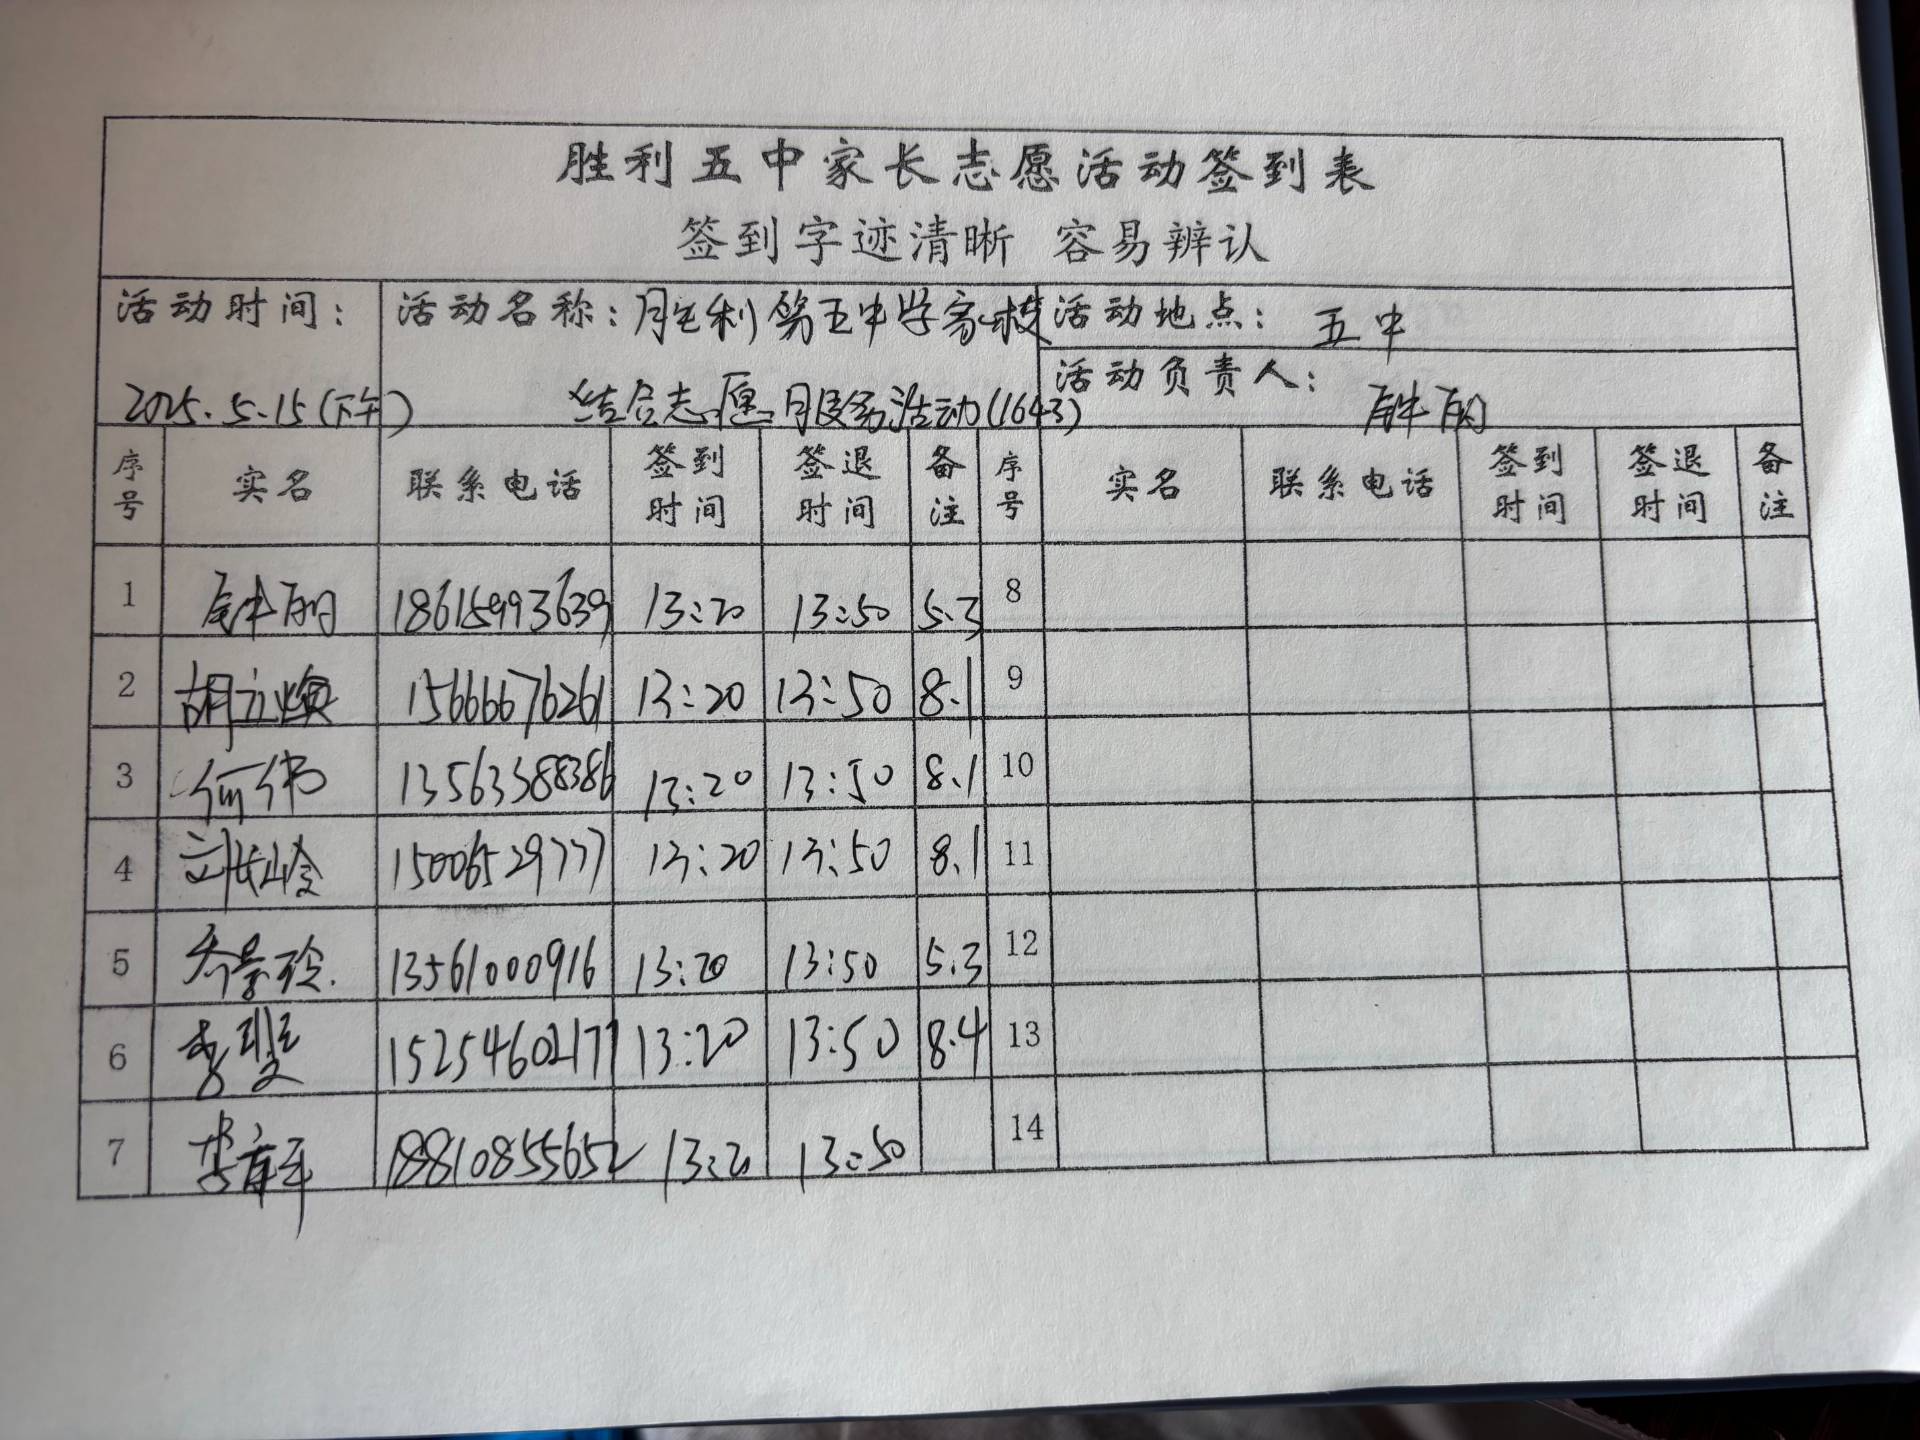 胜利五中家长志愿活动签到表
签到字迹清晰 容易辨认
活动时间： 活动名称：胜利第五中学家校 活动地点： 五中
2025.5.15(下午) 结合志愿服务活动(1643) 活动负责人：
序号 实名 联系电话 签到时间 签退时间 备注 序号 实名 联系电话 签到时间 签退时间 备注
1 18615993639 13:20 13:50 5.3 8
2 胡立焕 15666676261 13:20 13:50 8.1 9
3 何伟 13563388386 13:20 13:50 8.1 10
4 刘长岭 15006529777 13:20 13:50 8.1 11
5 乔景玲 13561000916 13:20 13:50 5.3 12
6 15254602177 13:20 13:50 8.4 13
7 18810855652 13:20 13:50 14